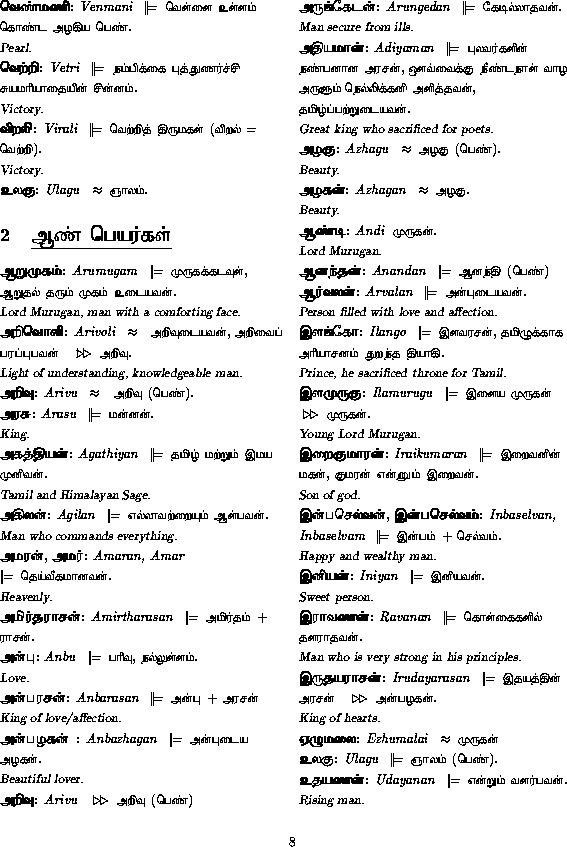 வெண்மணி: Venmani ‖= வெள்ளை உள்ளம்
கொண்ட அழகிய பெண்.
Pearl.
வெற்றி: Vetri ‖= நம்பிக்கை புத்துணர்ச்சி
சுயமரியாதையின் சின்னம்.
Victory.
விறலி: Virali ‖= வெற்றித் திருமகள் (விறல் =
வெற்றி).
Victory.
உலகு: Ulagu ≈ ஞாலம்.
2 ஆண் பெயர்கள்
ஆறுமுகம்: Arumugam |= முருகக்கடவுள்,
ஆறுதல் தரும் முகம் உடையவன்.
Lord Murugan, man with a comforting face.
அறிவொளி: Arivoli ≈ அறிவுடையவன், அறிவைப்
பரப்புபவன் ▷▷ அறிவு.
Light of understanding, knowledgeable man.
அறிவு: Arivu ≈ அறிவு (பெண்).
அரசு: Arasu ‖= மன்னன்.
King.
அகத்தியன்: Agathiyan ‖= தமிழ் மற்றும் இமய
முனிவன்.
Tamil and Himalayan Sage.
அகிலன்: Agilan |= எல்லாவற்றையும் ஆள்பவன்.
Man who commands everything.
அமரன், அமர்: Amaran, Amar
|= தெய்வீகமானவன்.
Heavenly.
அமிர்தராசன்: Amirtharasan |= அமிர்தம் +
ராசன்.
அன்பு: Anbu |= பரிவு, நல்லுள்ளம்.
Love.
அன்பரசன்: Anbarasan ‖= அன்பு + அரசன்
King of love/affection.
அன்பழகன் : Anbazhagan |= அன்புடைய
அழகன்.
Beautiful lover.
அறிவு: Arivu ▷▷ அறிவு (பெண்)
அருங்கேடன்: Arungedan ‖= கேடில்லாதவன்.
Man secure from ills.
அதியமான்: Adiyaman ‖= புலவர்களின்
நண்பனான அரசன், ஔவைவக்கு நீண்டநாள் வாழ
அருளும் நெல்லிக்கனி அளித்தவன்,
தமிழ்ப்பற்றுடையவன்.
Great king who sacrificed for poets.
அழகு: Azhagu ≈ அழகு (பெண்).
Beauty.
அழகன்: Azhagan ≈ அழகு.
Beauty.
ஆண்டி: Andi முருகன்.
Lord Murugan.
ஆனந்தன்: Anandan |= ஆனந்தி (பெண்)
ஆர்வலன்: Arvalan ‖= அன்புடையவன்.
Person filled with love and affection.
இளங்கோ: Ilango |= இளவரசன், தமிழுக்காக
அரியாசனம் துறந்த தியாகி.
Prince, he sacrificed throne for Tamil.
இளமுருகு: Ilamurugu |= இளைய முருகன்
▷▷ முருகன்.
Young Lord Murugan.
இறைகுமாரன்: Iraikumaran ‖= இறைவனின்
மகன், குமரன் என்னும் இறைவன்.
Son of god.
இன்பசெல்வன், இன்பசெல்வம்: Inbaselvan,
Inbaselvam ‖= இன்பம் + செல்வம்.
Happy and wealthy man.
இனியன்: Iniyan |= இனியவன்.
Sweet person.
இராவணன்: Ravanan ‖= கொள்கைகளில்
தளராதவன்.
Man who is very strong in his principles.
இருதயராசன்: Irudayarasan |= இதயத்தின்
அரசன் ▷▷ அன்பழகன்.
King of hearts.
ஏழுமலை: Ezhumalai ≈ முருகன்
உலகு: Ulagu ‖= ஞாலம் (பெண்).
உதயணன்: Udayanan |= என்றும் வளர்பவன்.
Rising man.
8